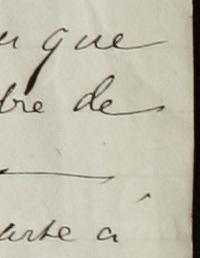 que
bre de
arte à